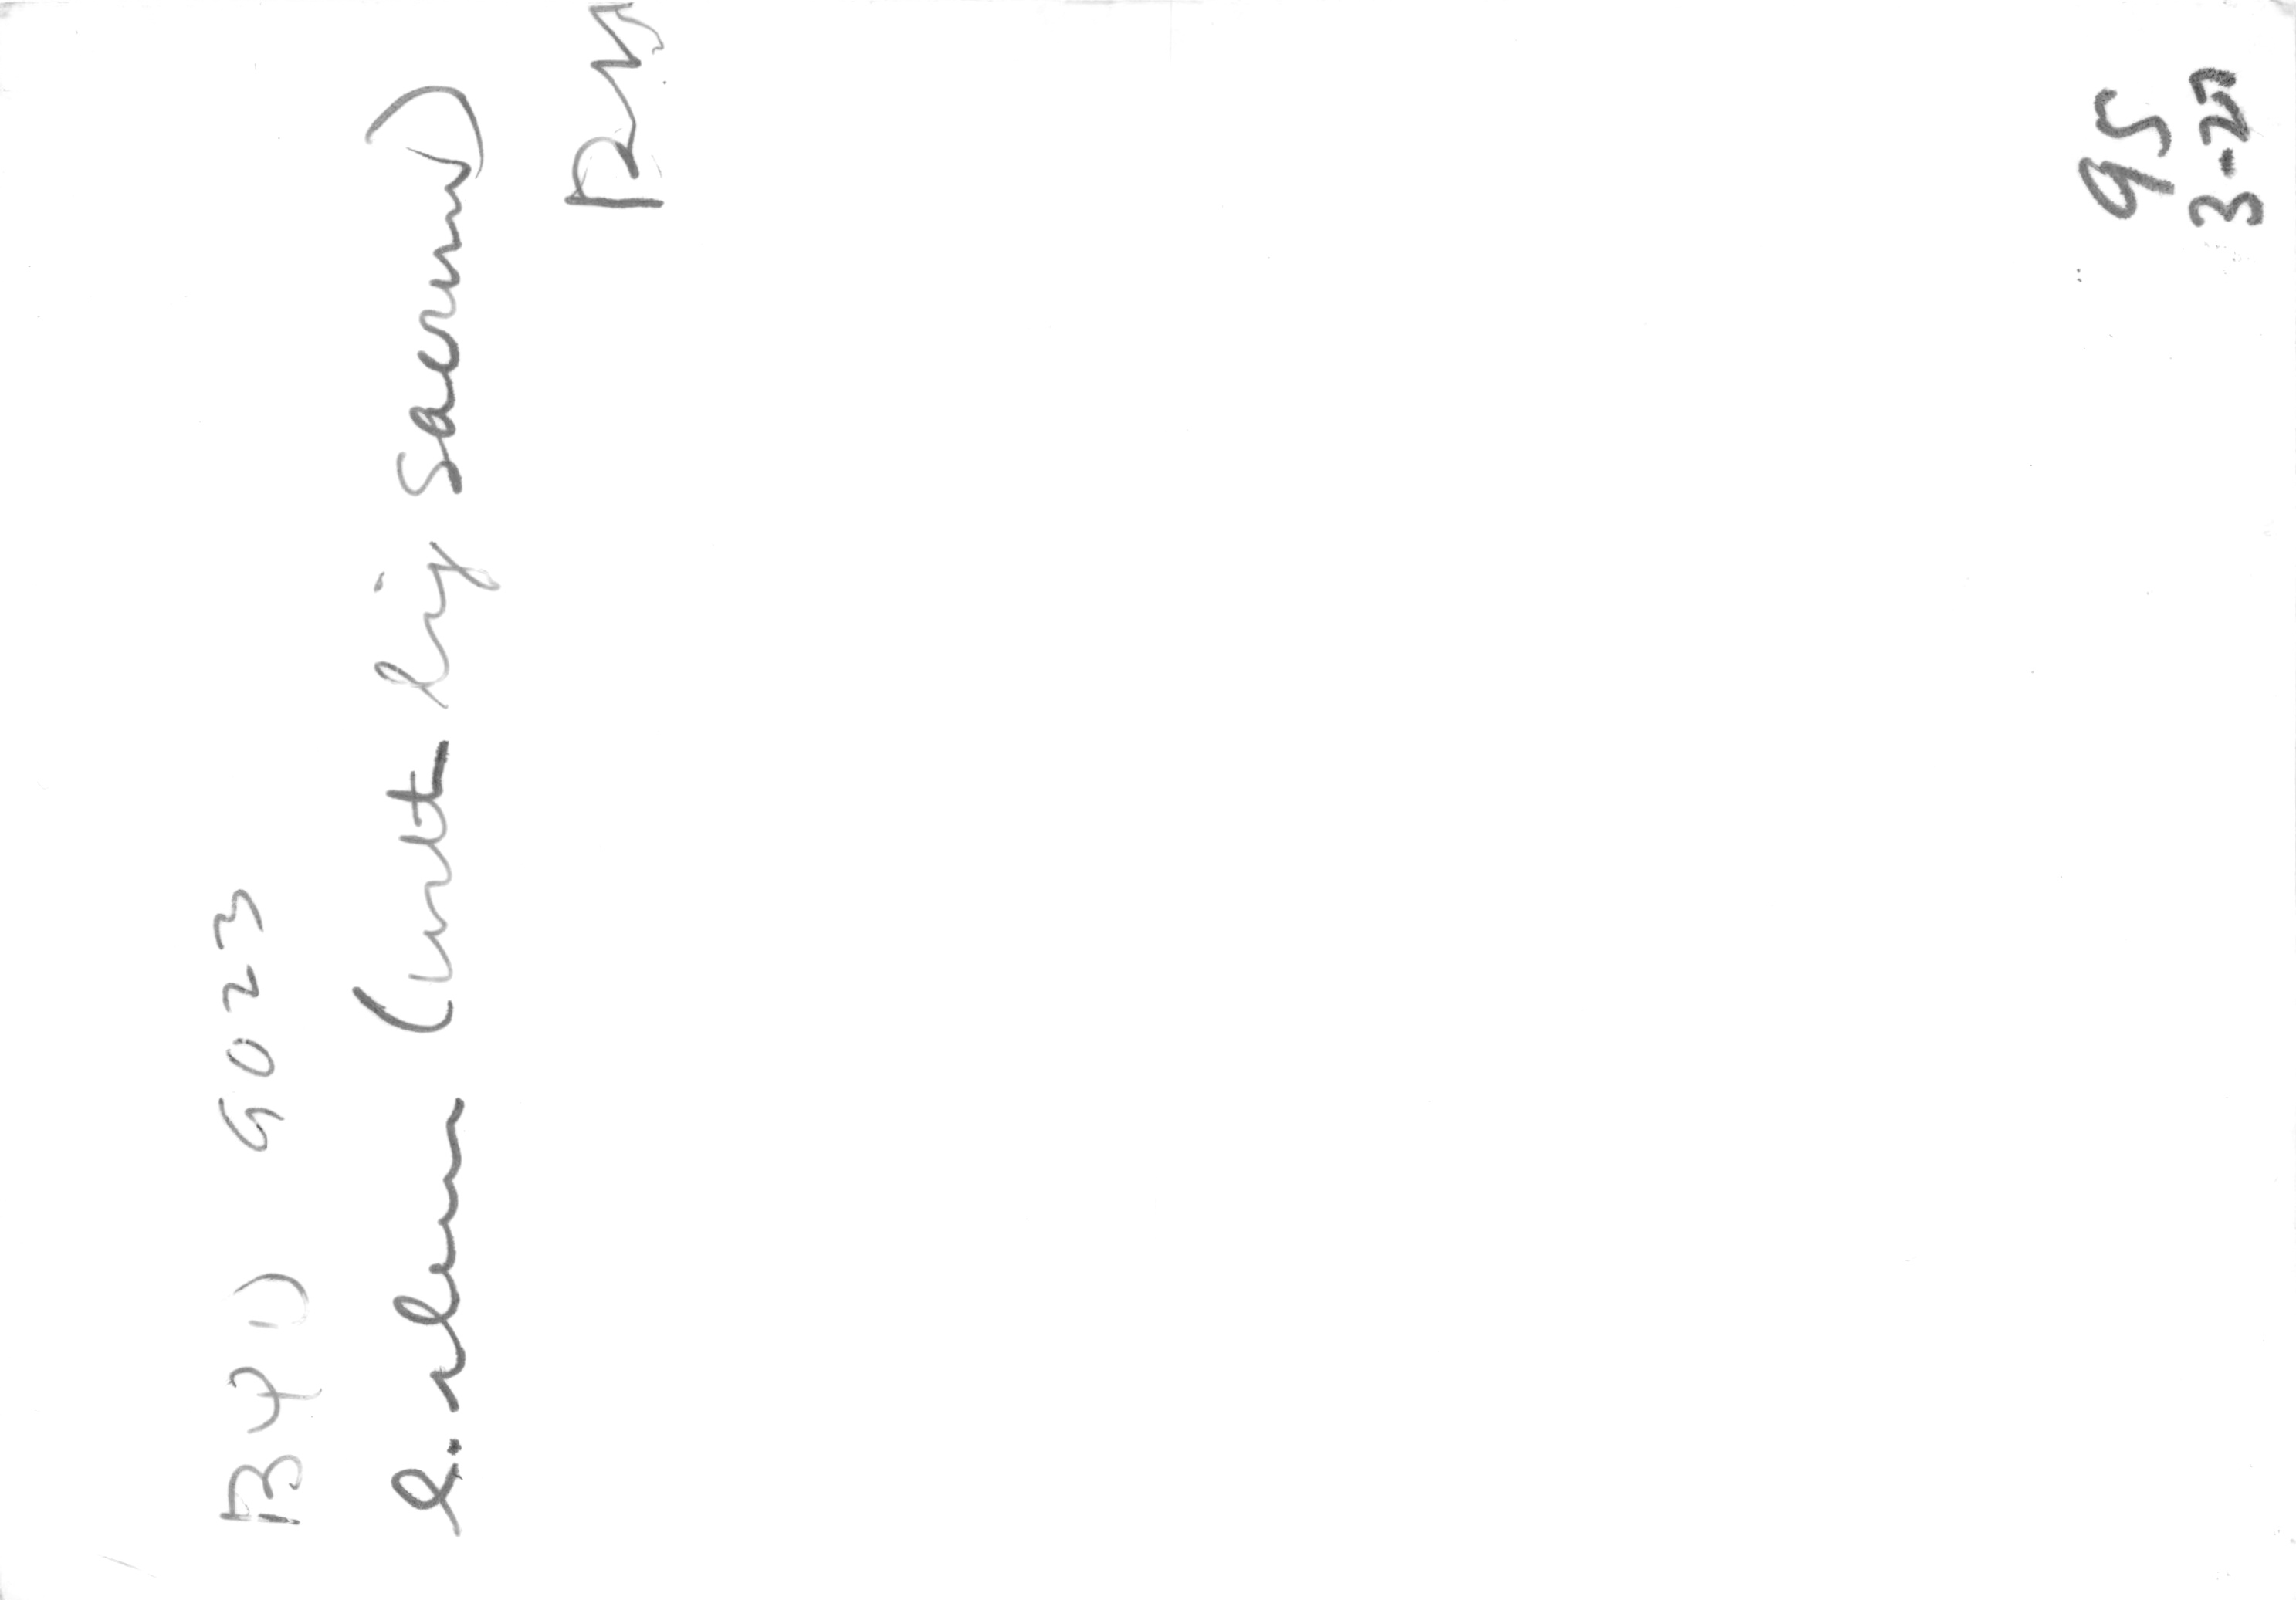 BYU 9023
l. ilium (with big sacrum)
RM
95
3-27